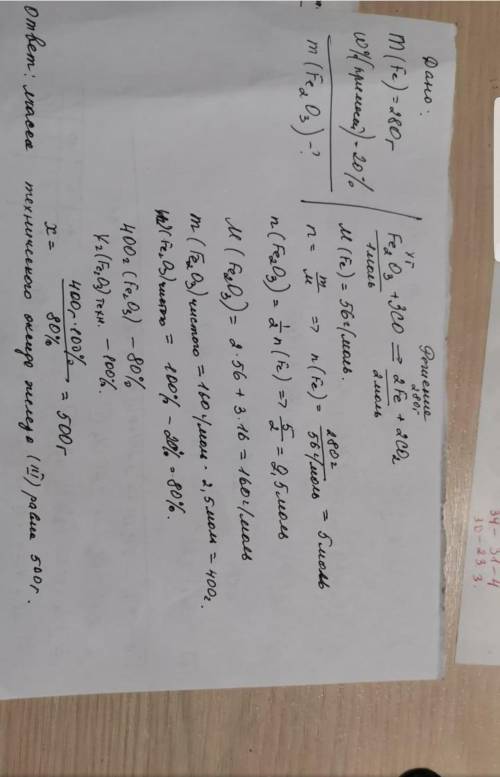 Дано:
m(Fe)=280г
W%(примесей)=20%
m(Fe2O3)-?
Решение
xг 280г
Fe2O3 + 3CO = 2Fe + 2CO2
1моль 2моль
M(Fe)=56г/моль.
n= m/M => n(Fe)= 280г/56г/моль = 5моль
n(Fe2O3)= 1/2 n(Fe) => 5/2 = 2,5моль
M(Fe2O3)= 2·56+3·16=160г/моль
m(Fe2O3)чистого = 160г/моль · 2,5моль = 400г.
(Fe2O3)чистого = 100% - 20% = 80%.
400г(Fe2O3) - 80%
Xг(Fe2O3)техн. - 100%.
x= 400г·100%/80% = 500г
Ответ: масса технического оксида железа (III) равна 500г.
34-31-4
30-23 3.